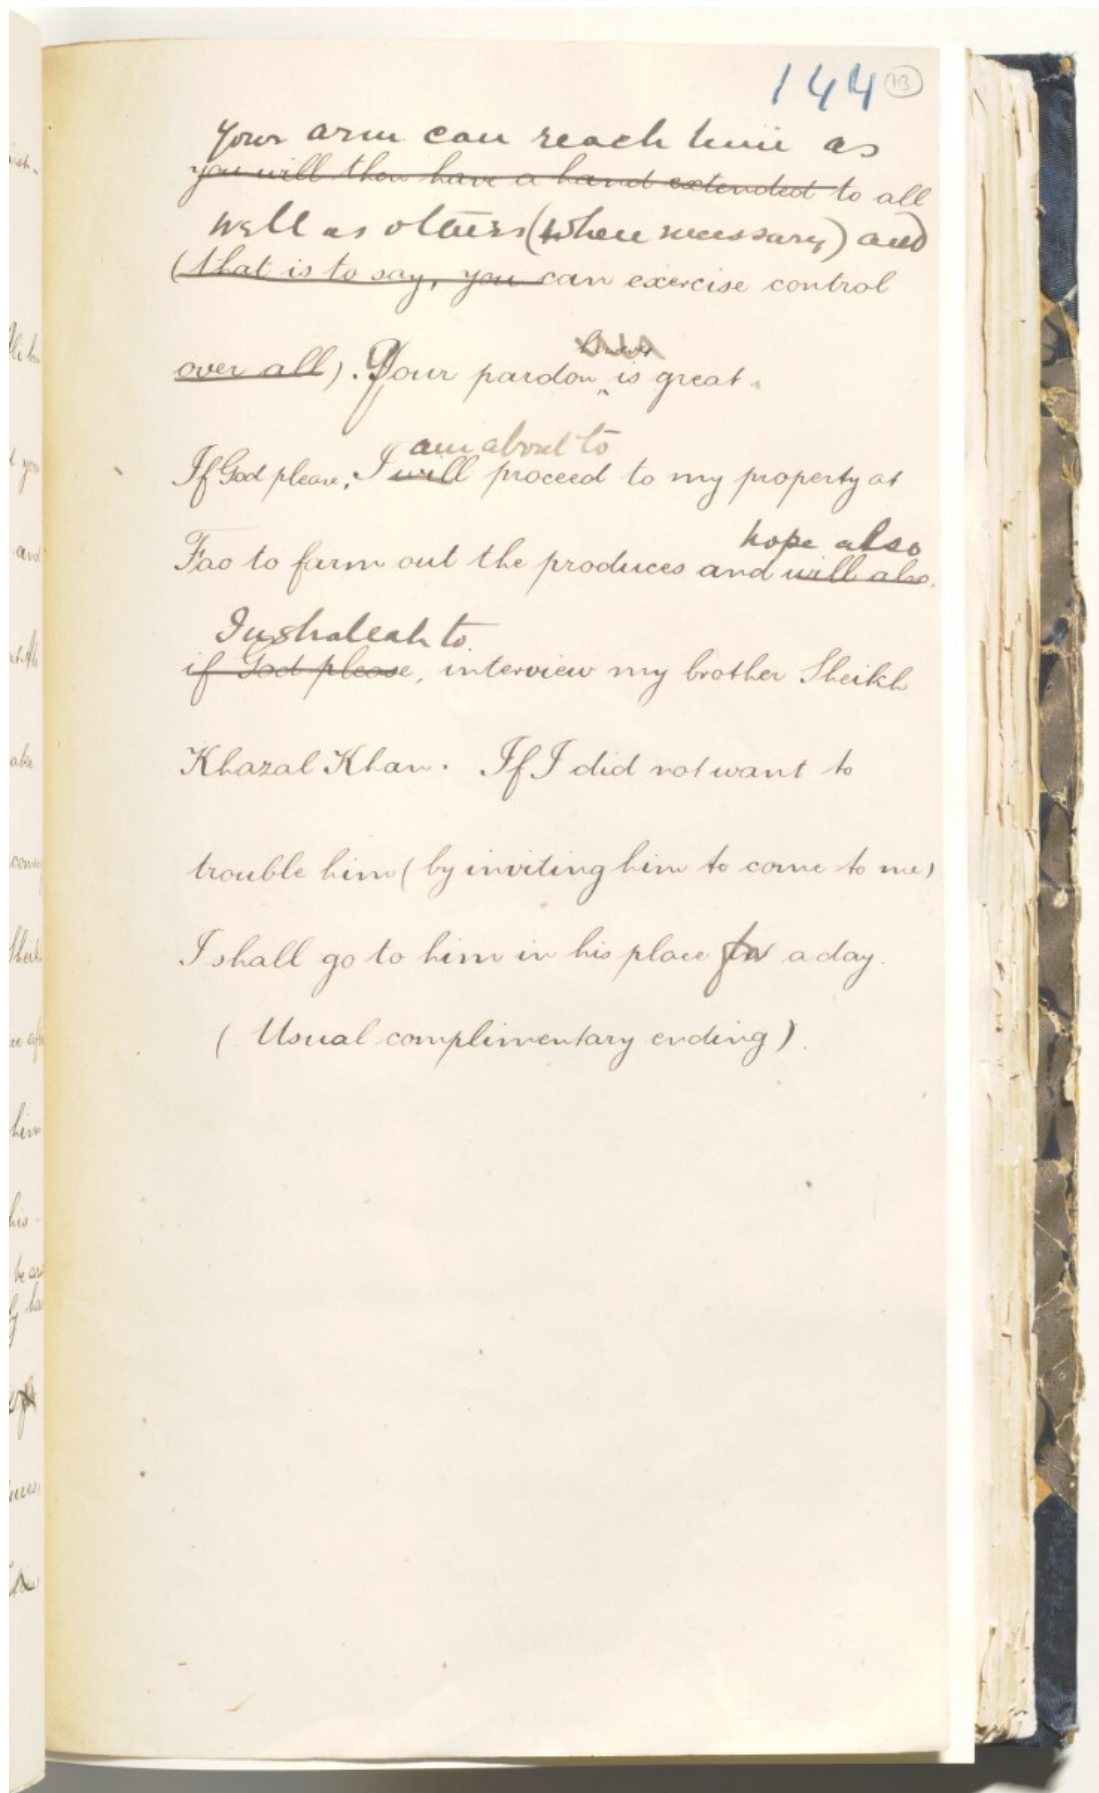 144
113
your arm can reach him as
you will then have a hand extended to all
well as others (when necessary) and
(that is to say, you can exercise control
over all). Your pardon is great.
am about to
If God please, I will proceed to my property at
hope also
Fao to farm out the produces and will also,
Inshaleah to
if God please, interview my brother Sheikh
Khazal Khan. If I did not want to
trouble him (by inviting him to come to me)
I shall go to him in his place for a day.
(Usual complimentary ending).